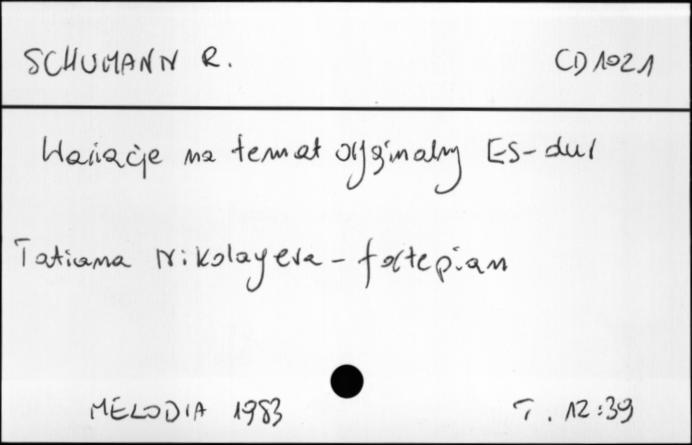 SCHUMANN R. CD 1021
Wariacje na temat oryginalny ES-dur
Tatiana Nikolayeva - fortepian
MELODIA 1983 T. 12:39